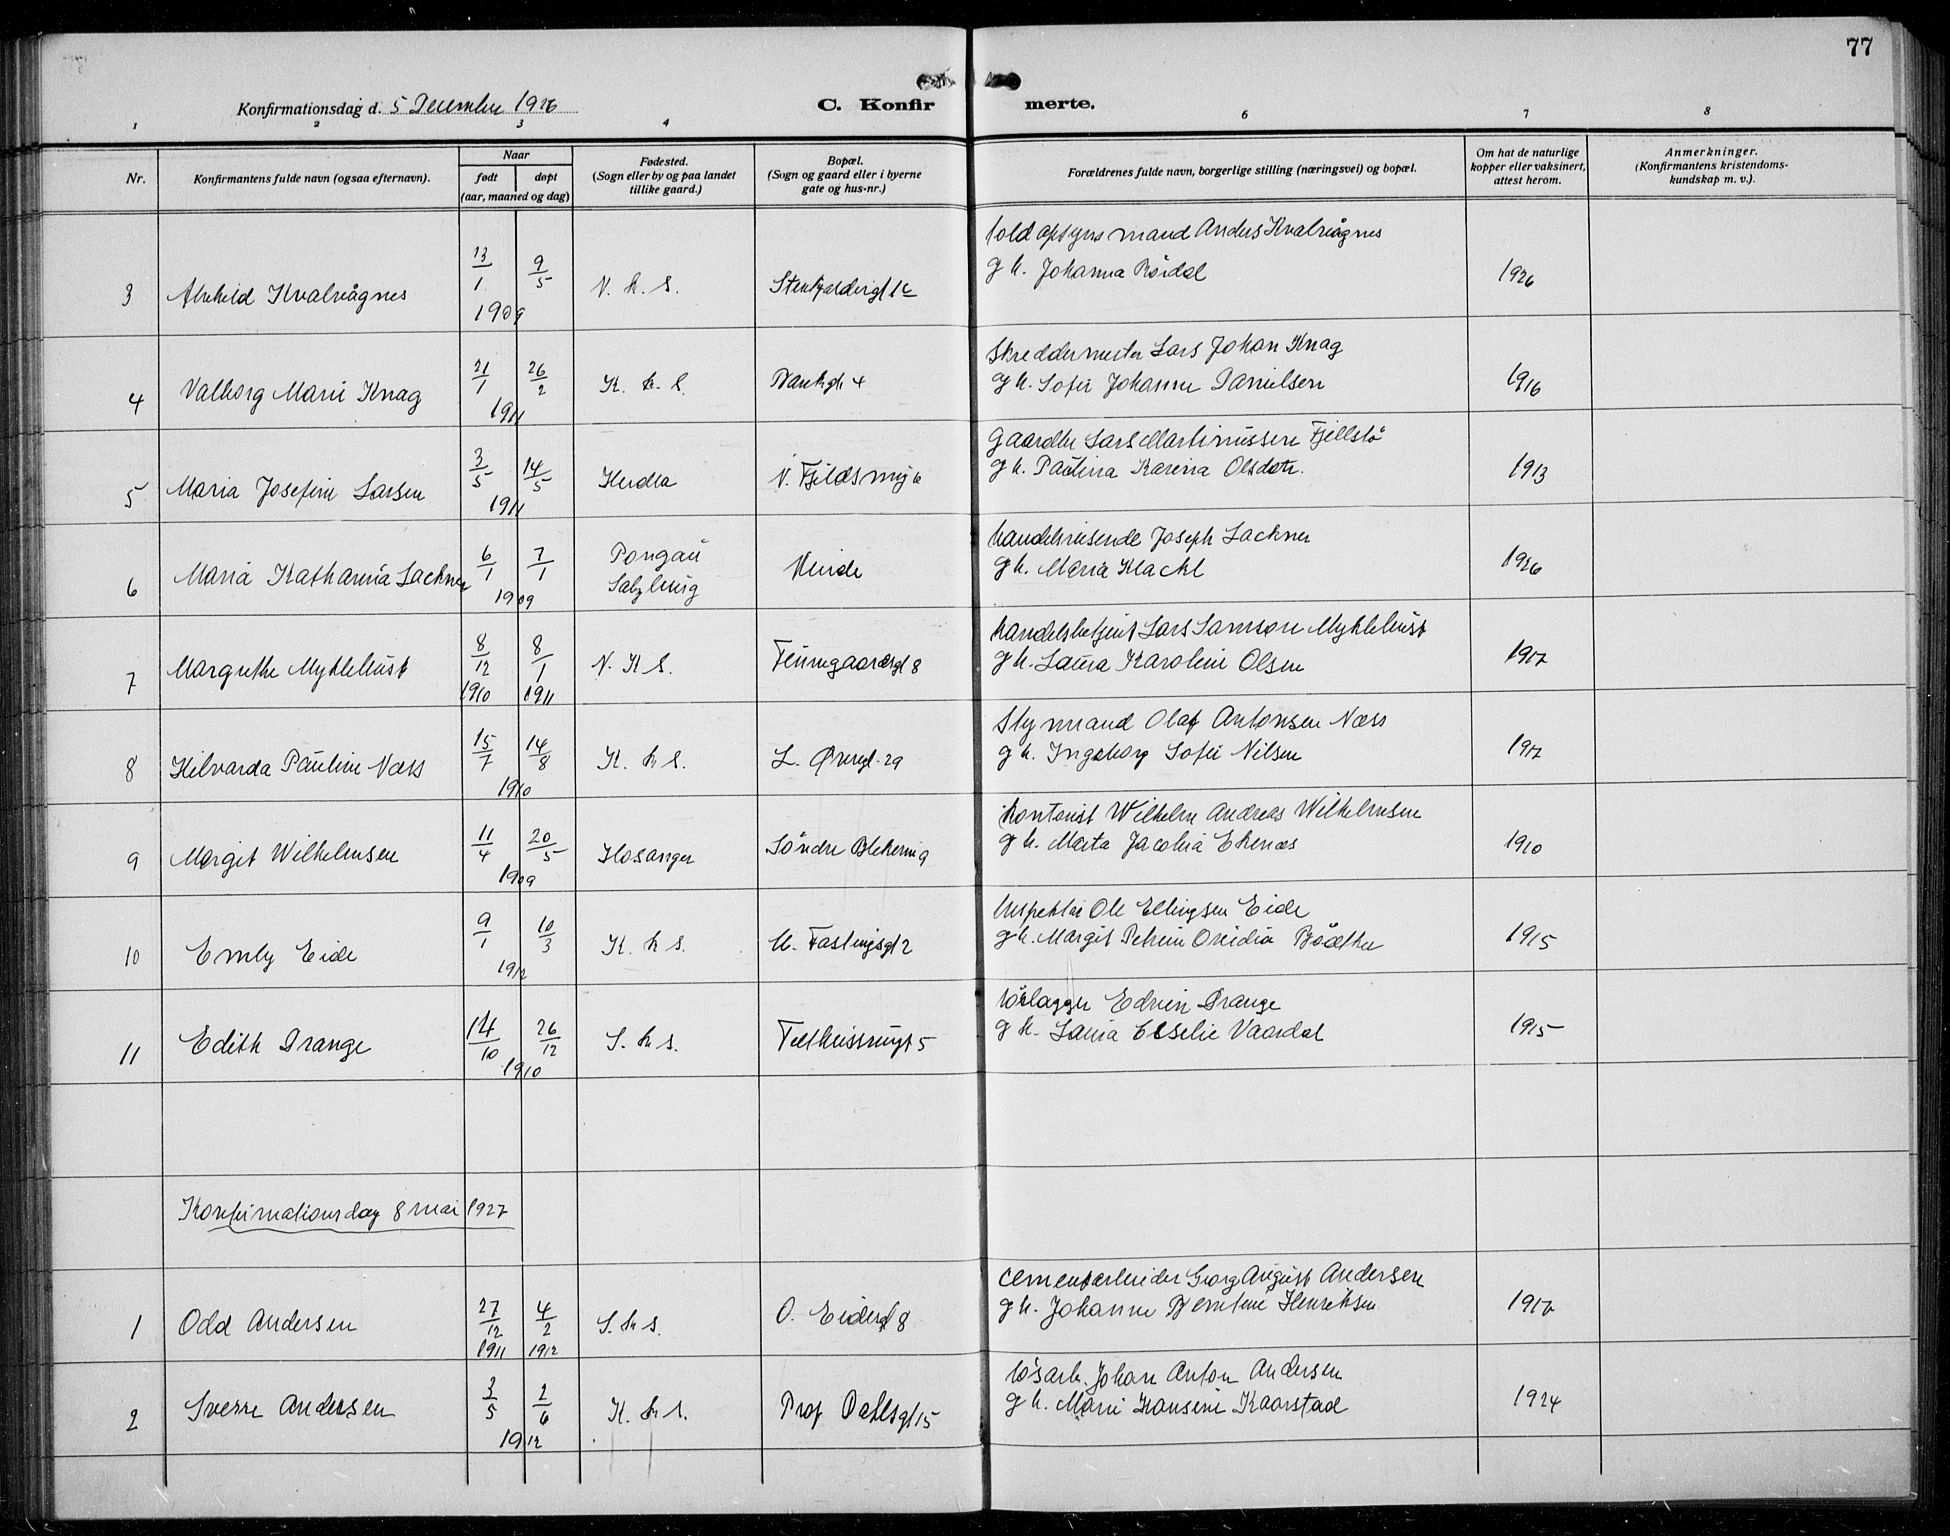 77
Konfirmationsdag d. 5 December 1926
C. Konfirmerte.
1 2 3 4 6 7 8
Nr.
Konfirmantens fulde navn (ogsaa efternavn).
Naar
født døpt
(aar, maaned og dag)
Fødested.
(Sogn eller by og paa landet
tillike gaard.)
Bopæl.
(Sogn og gaard eller i byerne
gate og hus-nr.)
Forældrenes fulde navn, borgerlige stilling (næringsvei) og bopæl.
Om hat de naturlige
kopper eller vaksinert,
attest herom.
Anmerkninger.
(Konfirmantens kristendoms-
kundskap m. v.).
3 Kvalvågnes 13/1 9/5 1909 N. k. s.
toldopsynsmand Anders Kvalvågnes
g m. Johanna 1926
4 Valborg Marie Knag 21/1 26/2 1911 K. k. s. 4
Skreddermester Lars Johan Knag
g m. Sofie Johanne Danielsen 1916
5 Maria Josefine Larsen 3/5 14/5 1911 Herdla
Lars Martinussen Fjellstø
g m. Paulina Karina Olsdatr. 1913
6 Maria Katharina Lackner 6/1 7/1 1909 Pongau
Salzburg Minde
handelsreisende Joseph Lackner
g m. Maria Klackl 1926
7 Margrethe Myklebust 8/12 1910 8/1 1911 N. K S. 8
handelsbetjent Lars Samson Myklebust
g m. Laura Karoline Olsen 1917
8 Hilvarda Pauline Næss 15/7 14/8 1910 K. k s. L. Øvregt. 29
Styrmand Olaf Antonsen Næss
g m. Ingeborg Sofie Nilsen 1917
9 Margit Wilhelmsen 11/4 20/5 1909 Hosanger Søndre
kontorist Wilhelm Andreas Wilhelmsen
g m. Marta Jacobia Ekenæs 1910
10 Emly Eide 9/1 10/3 1912 K. k s. M. Fastingsgt 2
Inspektør Ole Ellingsen Eide
g m. Margit Petrine Ovidia 1915
11 Edith Drange 14/10 26/12 1910 S. k s. 5
rørlægger Edvin Drange
g m. Laura Vaardal 1915
Konfirmationsdag 8 mai 1927
1 Odd Andersen 27/12 1911 4/2 1912 S. k s. O. Eidesgt 8
cementarbeider Georg August Andersen
g m. Johanne Bentine Henriksen
2 Sverre Andersen 3/5 2/6 1912 K. k s. Prof Dahlsgt 15
løsarb. Johan Anton Andersen
g m. Marie Hansine Kaarstad 1924